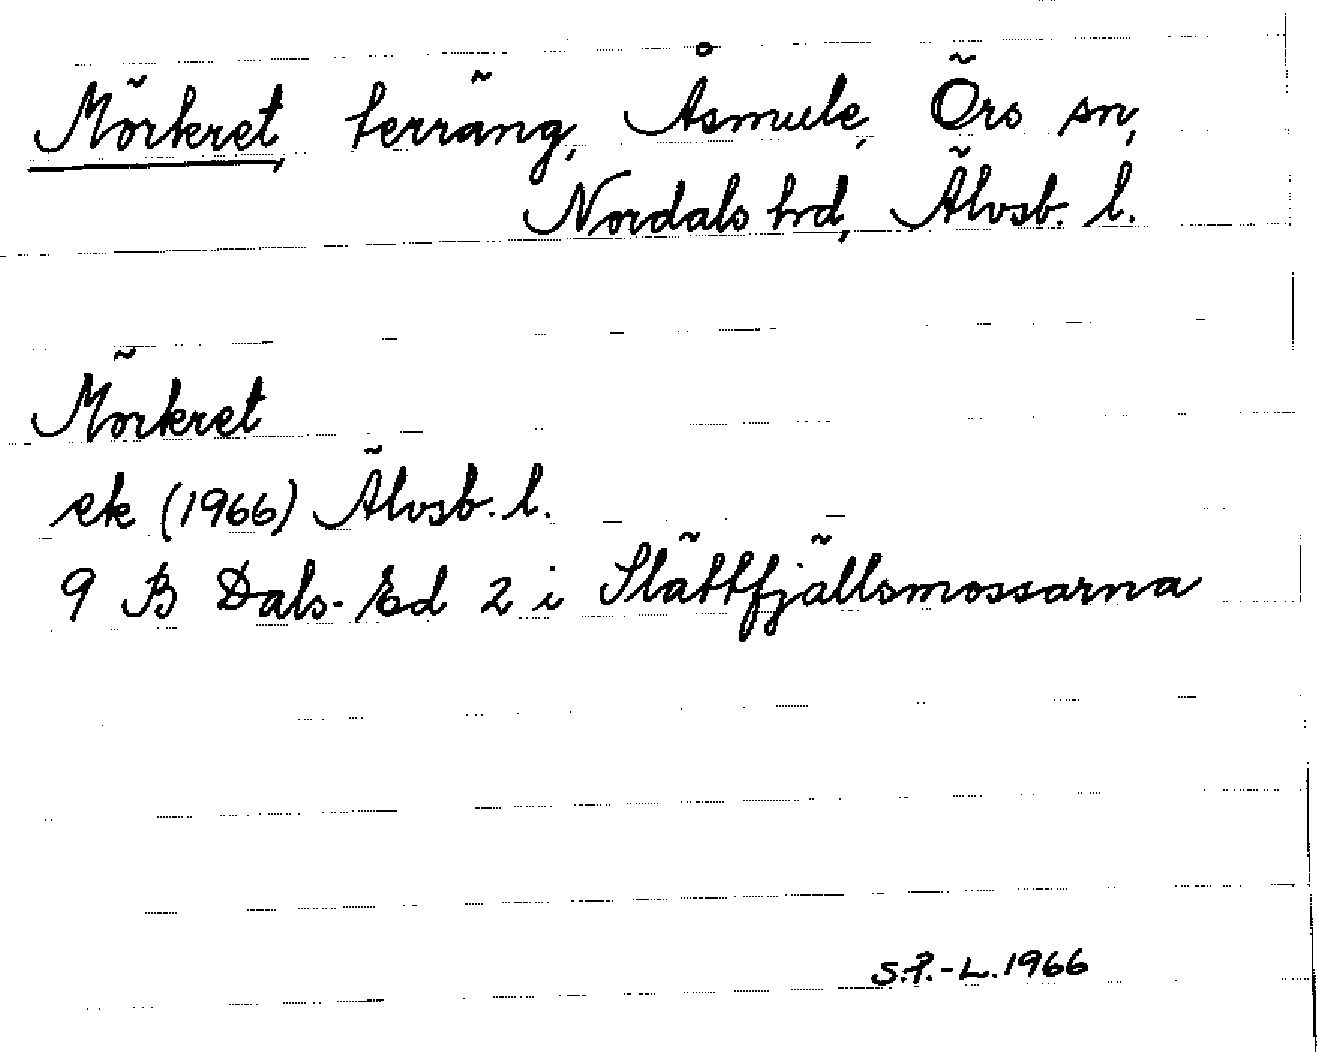 Mörkret, terräng, Åsmule, Örs sn,
Nordals hrd, Älvsb. l.
Mörkret
ek (1966) Älvsb. l.
9 B Dals-Ed 2 i Slättfjällsmossarna
S.P.-L. 1966